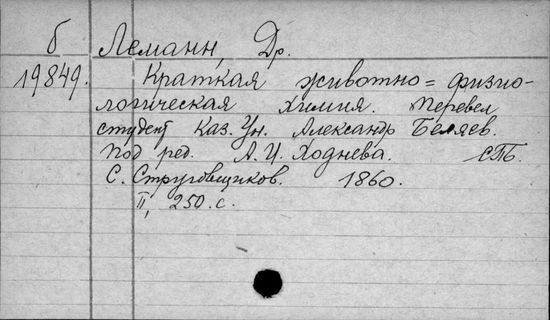 б Леманн, Др.
19849. Краткая животно = физио-
логическая химия. Перевел
студент Каз. Ун. Александр Беляев.
Под ред. А. И. Ходнева. СПб.
С. Струговщиков. 1860.
II, 250 с.